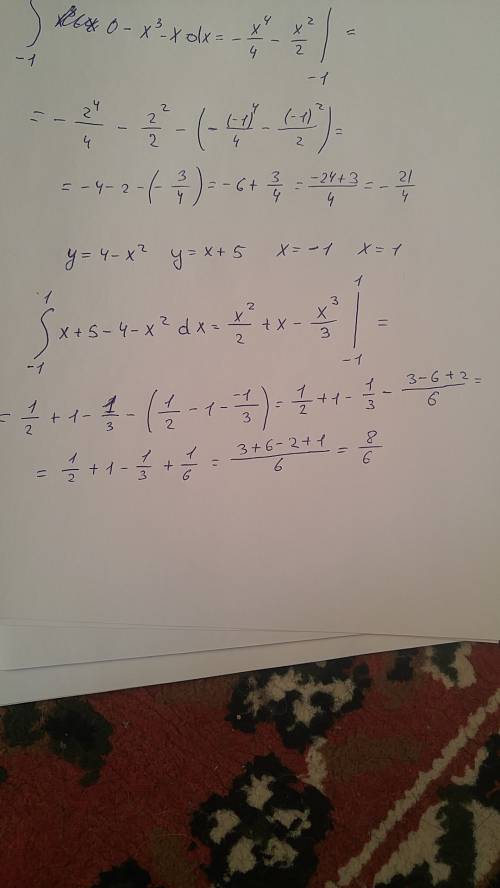 ∫₋₁ 0 - x³ - x dx = - x⁴/4 - x²/2 |₋₁ =
= - 2⁴/4 - 2²/2 - (- (-1)⁴/4 - (-1)²/2) =
= -4 - 2 - (- 3/4) = -6 + 3/4 = (-24+3)/4 = - 21/4
y = 4 - x² y = x + 5 x = -1 x = 1
∫₋₁¹ x + 5 - 4 - x² dx = x²/2 + x - x³/3 |₋₁¹ =
= 1/2 + 1 - 1/3 - (1/2 - 1 - -1/3) = 1/2 + 1 - 1/3 - (3-6+2)/6 =
= 1/2 + 1 - 1/3 + 1/6 = (3+6-2+1)/6 = 8/6